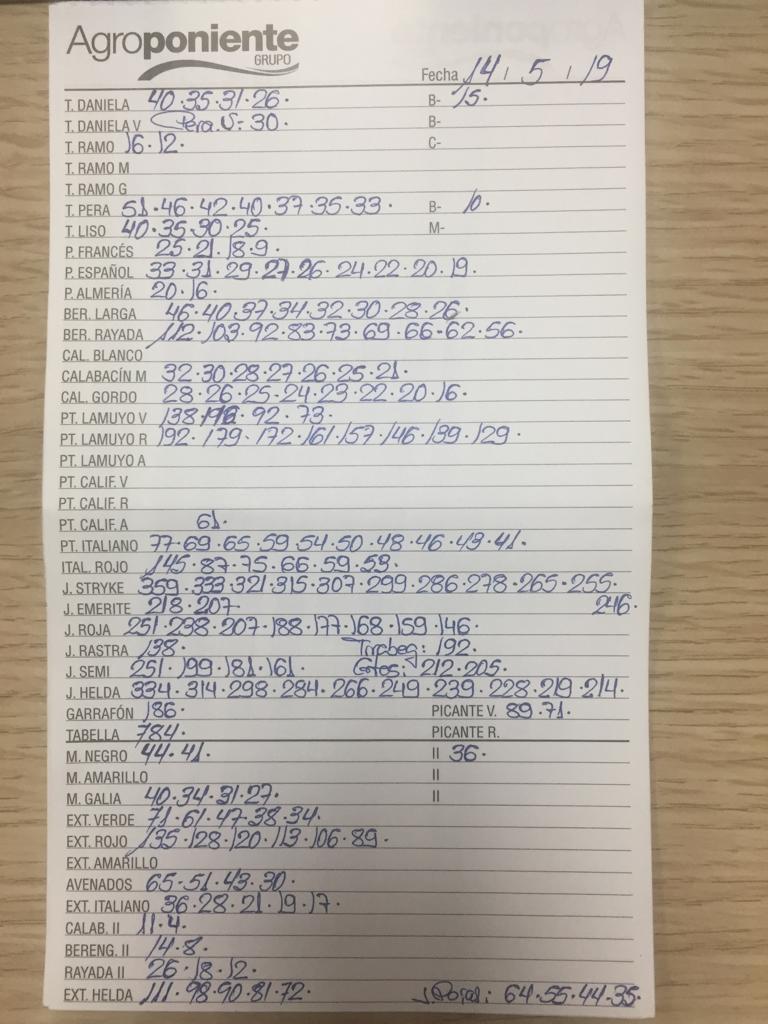 Agroponiente
GRUPO
Fecha 14 / 5 / 19
T. DANIELA 40·35·31·26· B- 15·
T. DANIELA V Pera.V:- 30· B-
T. RAMO 16·12· C-
T. RAMO M
T. RAMO G
T. PERA 51·46·42·40·37·35·33· B- 10·
T. LISO 40·35·30·25· M-
P. FRANCÉS 25·21·18·9·
P. ESPAÑOL 33·31·29·27·26·24·22·20·19·
P. ALMERÍA 20·16·
BER. LARGA 46·40·37·34·32·30·28·26·
BER. RAYADA 112·103·92·83·73·69·66·62·56·
CAL. BLANCO
CALABACÍN M 32·30·28·27·26·25·21·
CAL. GORDO 28·26·25·24·23·22·20·16·
PT. LAMUYO V 138· 92·73·
PT. LAMUYO R 192·179·172·161·157·146·139·129·
PT. LAMUYO A
PT. CALIF. V
PT. CALIF. R
PT. CALIF. A 61·
PT. ITALIANO 77·69·65·59·54·50·48·46·43·41·
ITAL. ROJO 145·87·75·66·59·53·
J. STRYKE 359·333·321·315·307·299·286·278·265·255·
J. EMERITE 218·207· 246·
J. ROJA 251·238·207·188·177·168·159·146·
J. RASTRA 138· Tirabeq: 192·
J. SEMI 251·199·181·161· 212·205·
J. HELDA 334·314·298·284·266·249·239·228·219·214·
GARRAFÓN 186· PICANTE V. 89·71·
TABELLA 784· PICANTE R.
M. NEGRO 44·41· II 36·
M. AMARILLO II
M. GALIA 40·34·31·27· II
EXT. VERDE 71·61·47·38·34·
EXT. ROJO 135·128·120·113·106·89·
EXT. AMARILLO
AVENADOS 65·51·43·30·
EXT. ITALIANO 36·28·21·19·17·
CALAB. II 11·4·
BERENG. II 14·8·
RAYADA II 26·18·12·
EXT. HELDA 111·98·90·81·72· 64·55·44·35·